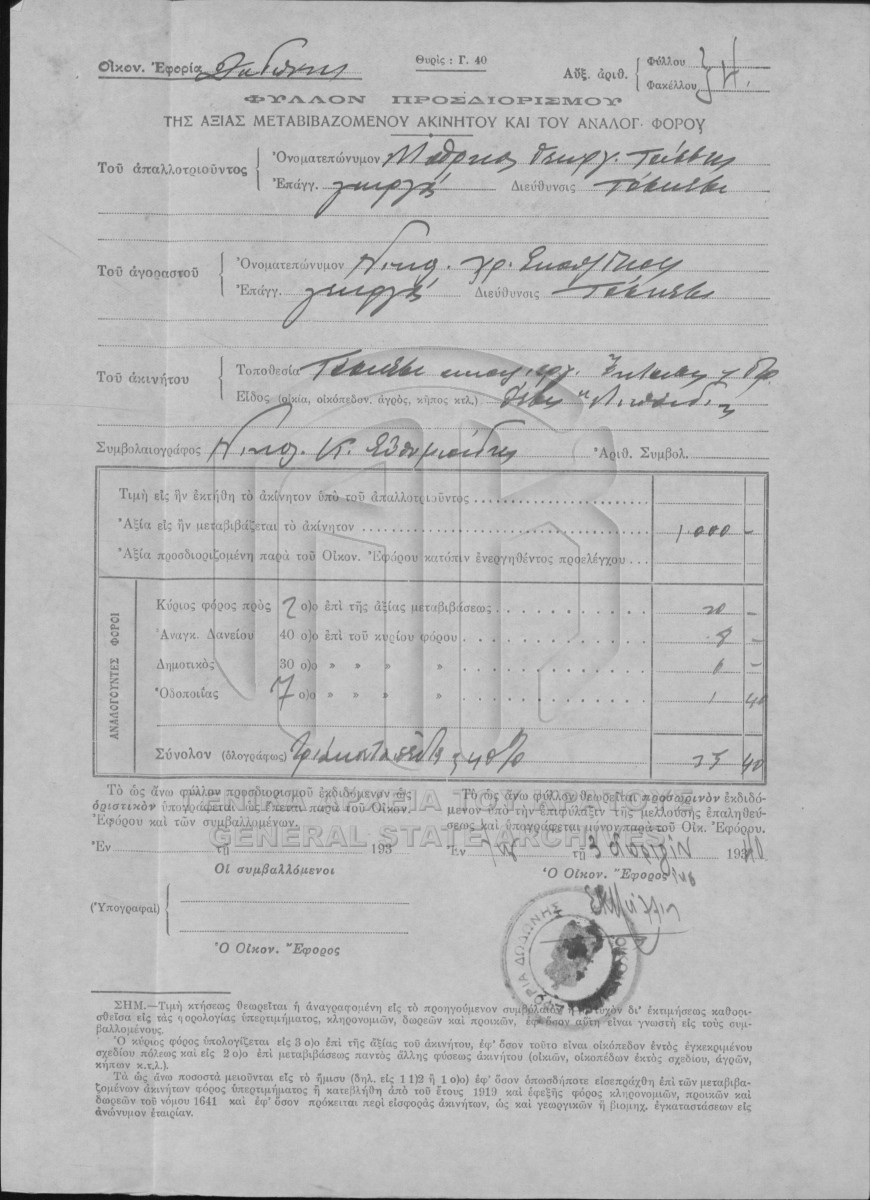 Οἰκον. Ἐφορία Δωδώνης
Θυρὶς : Γ. 40
Αὔξ. ἀριθ. Φύλλου
Φακέλλου
ΦΥΛΛΟΝ ΠΡΟΣΔΙΟΡΙΣΜΟΥ
ΤΗΣ ΑΞΙΑΣ ΜΕΤΑΒΙΒΑΖΟΜΕΝΟΥ ΑΚΙΝΗΤΟΥ ΚΑΙ ΤΟΥ ΑΝΑΛΟΓ. ΦΟΡΟΥ
Τοῦ ἀπαλλοτριοῦντος
Ὀνοματεπώνυμον
Ἐπάγγ. Διεύθυνσις
Τοῦ ἀγοραστοῦ
Ὀνοματεπώνυμον
Ἐπάγγ. Διεύθυνσις
Τοῦ ἀκινήτου
Τοποθεσία
Εἶδος (οἰκία, οἰκόπεδον. ἀγρός, κῆπος κτλ.)
Συμβολαιογράφος Νικολ. Κ. Ἀριθ. Συμβολ.
Τιμὴ εἰς ἣν ἐκτήθη τὸ ἀκίνητον ὑπὸ τοῦ ἀπαλλοτριοῦντος
Ἀξία εἰς ἣν μεταβιβάζεται τὸ ἀκίνητον 1.000 -
Ἀξία προσδιοριζομένη παρὰ τοῦ Οἰκον. Ἐφόρου κατόπιν ἐνεργηθέντος προελέγχου
ΑΝΑΛΟΓΟΥΝΤΕΣ ΦΟΡΟΙ
Κύριος φόρος πρὸς 2 ο)ο ἐπὶ τῆς ἀξίας μεταβιβάσεως 20 -
Ἀναγκ. Δανείου 40 ο)ο ἐπὶ τοῦ κυρίου φόρου 8 -
Δημοτικὸς 30 ο)ο » » » 6 -
Ὁδοποιΐας 7 ο)ο » » » 1 40
Σύνολον (ὁλογράφως) 35 40
Τὸ ὡς ἄνω φύλλον προσδιορισμοῦ ἐκδιδόμενον ὡς
ὁριστικὸν ὑπογράφεται ὡς ἕπεται παρὰ τοῦ Οἰκον.
Ἐφόρου καὶ τῶν συμβαλλομένων.
Ἐν τῇ 193
Οἱ συμβαλλόμενοι
(Ὑπογραφαὶ)
Ὁ Οἰκον. Ἔφορος
Τὸ ὡς ἄνω φύλλον θεωρεῖται προσωρινὸν ἐκδιδό-
μενον ὑπὸ τὴν ἐπιφύλαξιν τῆς μελλούσης ἐπαληθεύ-
σεως καὶ ὑπογράφεται μόνον παρὰ τοῦ Οἰκ. Ἐφόρου.
Ἐν τῇ 3 193
Ὁ Οἰκον. Ἔφορος
ΓΕΝΙΚΑ ΑΡΧΕΙΑ ΤΟΥ ΚΡΑΤΟΥΣ
GENERAL STATE ARCHIVES
ΕΦΟΡΙΑ ΔΩΔΩΝΗΣ
ΣΗΜ.—Τιμὴ κτήσεως θεωρεῖται ἡ ἀναγραφομένη εἰς τὸ προηγούμενον συμβόλαιον ἢ τυχὸν δι' ἐκτιμήσεως καθορι-
σθεῖσα εἰς τὰς φορολογίας ὑπερτιμήματος, κληρονομιῶν, δωρεῶν καὶ προικῶν, ἐφ' ὅσον αὕτη εἶναι γνωστὴ εἰς τοὺς συμ-
βαλλομένους.
Ὁ κύριος φόρος ὑπολογίζεται εἰς 3 ο)ο ἐπὶ τῆς ἀξίας τοῦ ἀκινήτου, ἐφ' ὅσον τοῦτο εἶναι οἰκόπεδον ἐντὸς ἐγκεκριμένου
σχεδίου πόλεως καὶ εἰς 2 ο)ο ἐπὶ μεταβιβάσεως παντὸς ἄλλης φύσεως ἀκινήτου (οἰκιῶν, οἰκοπέδων ἐκτὸς σχεδίου, ἀγρῶν,
κήπων κ.τ.λ.).
Τὰ ὡς ἄνω ποσοστὰ μειοῦνται εἰς τὸ ἥμισυ (δηλ. εἰς 1 1)2 ἢ 1 ο)ο) ἐφ' ὅσον ὁπωσδήποτε εἰσεπράχθη ἐπὶ τῶν μεταβιβα-
ζομένων ἀκινήτων φόρος ὑπερτιμήματος ἢ κατεβλήθη ἀπὸ τοῦ ἔτους 1919 καὶ ἐφεξῆς φόρος κληρονομιῶν, προικῶν καὶ
δωρεῶν τοῦ νόμου 1641 καὶ ἐφ' ὅσον πρόκειται περὶ εἰσφορᾶς ἀκινήτων, ὡς καὶ γεωργικῶν ἢ βιομηχ. ἐγκαταστάσεων εἰς
ἀνώνυμον ἑταιρίαν.